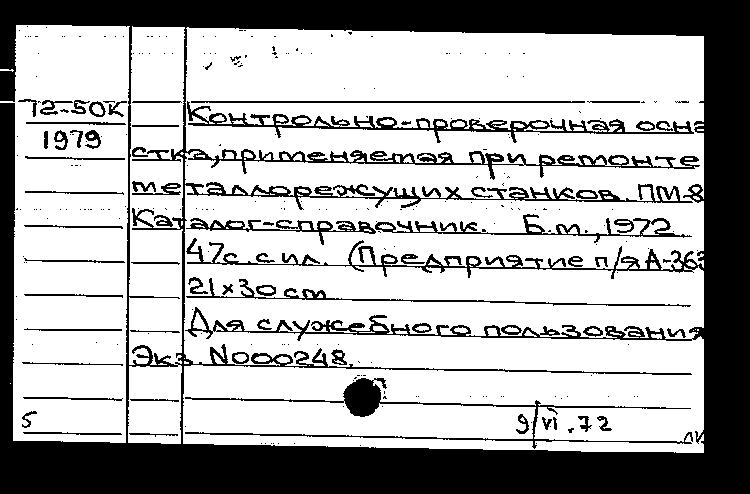 72-50К
1979
Контрольно-проверочная осна
стка, применяемая при ремонте
металлорежущих станков. ПМ-8
Каталог-справочник. Б.м., 1972.
47с. с ил. (Предприятие п/я А-363
21×30 cm
Для служебного пользования
Экз. N000248.
5 9/VI.72